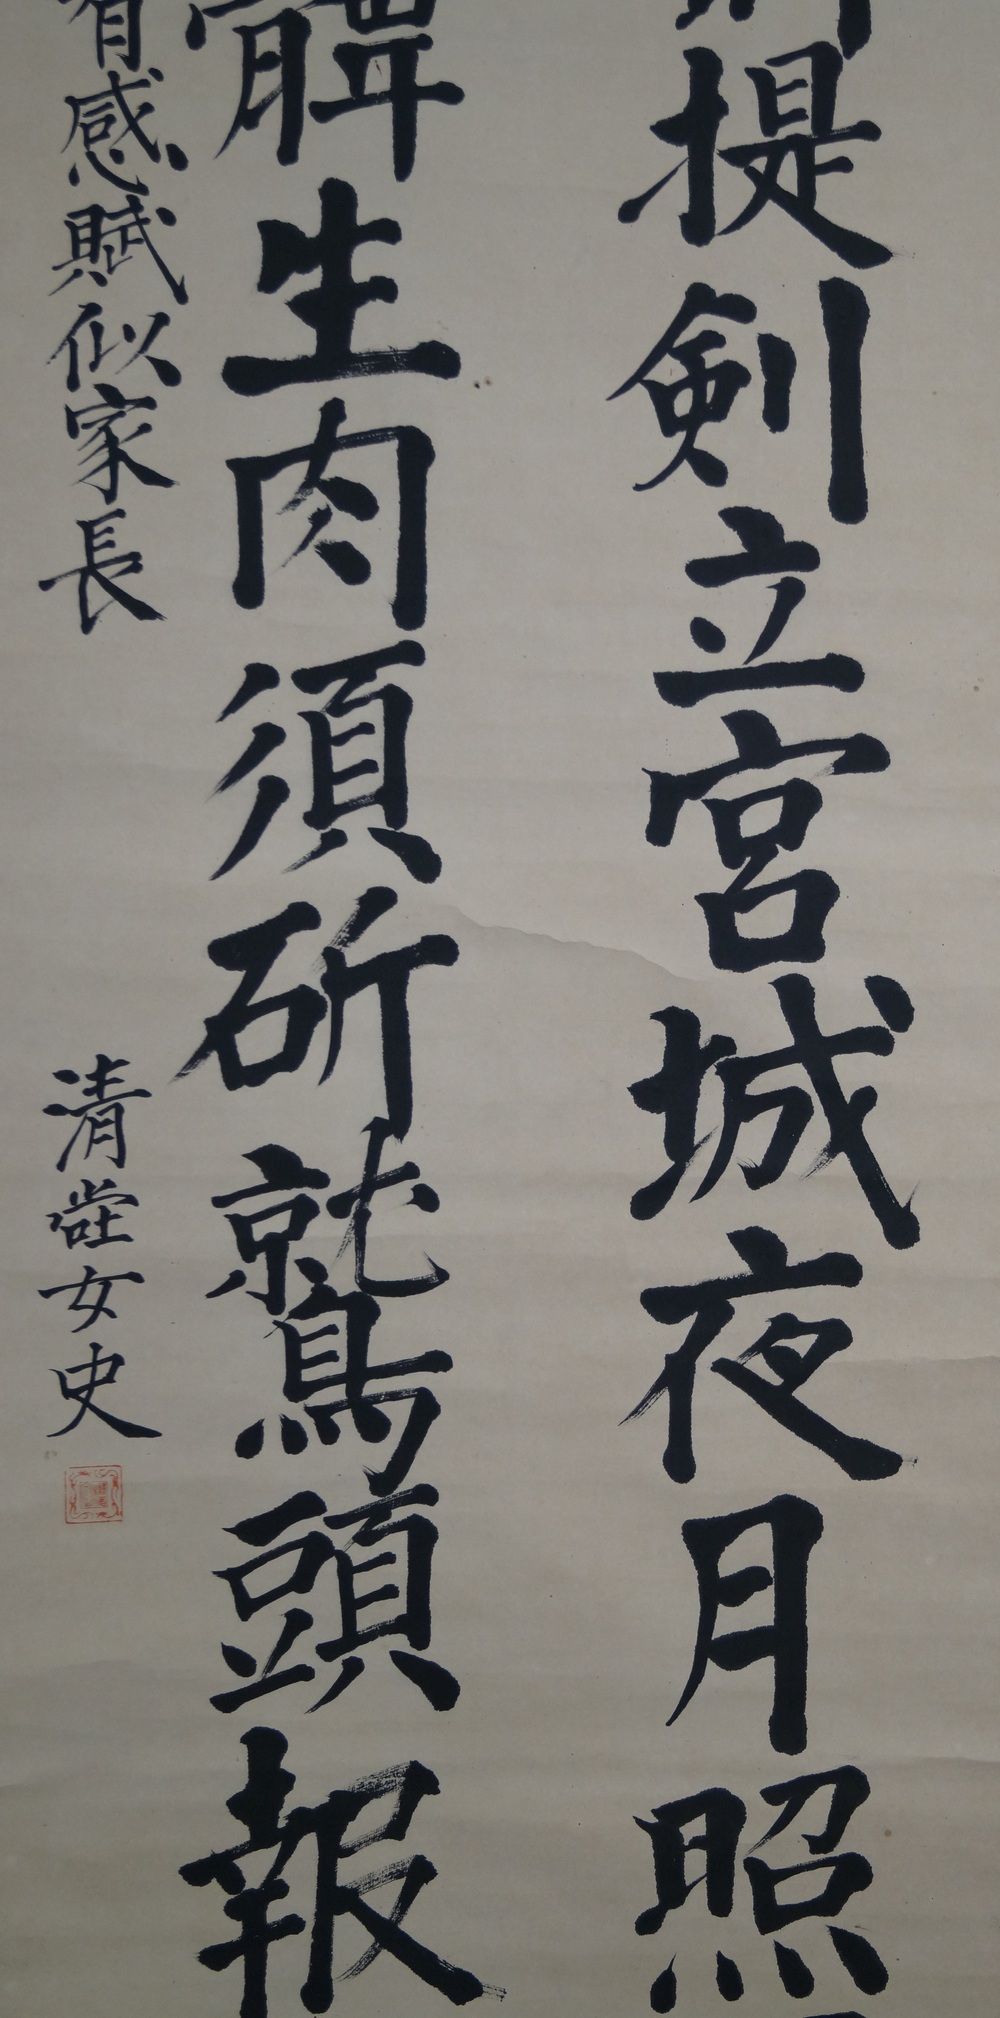 提劍立宮城夜月照
髀生肉須斫鷲頭報
有感賦似家長
清瑩女史